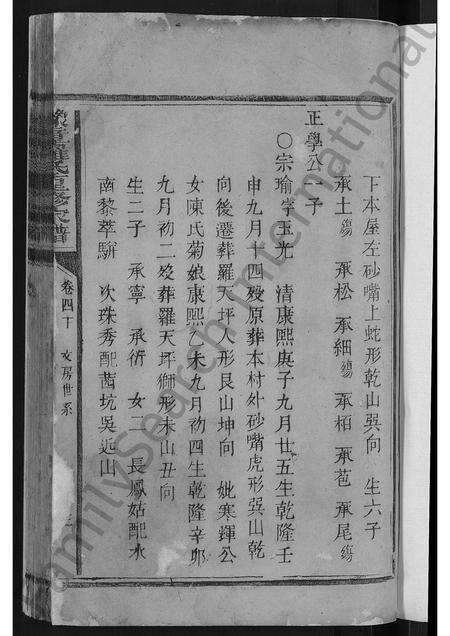 下本屋左砂嘴上蛇形乾山巽向 生六子
承土殤 承松 承細殤 承栢 承苞 承尾殤
正學公一子
○宗瑜字玉光 清康熙庚子九月廿五生乾隆壬
申九月十四歿原葬本村外砂嘴虎形巽山乾
向後遷葬羅天坪人形艮山坤向 妣寒輝公
女陳氏菊娘康熙乙未九月初四生乾隆辛卯
九月初二歿葬羅天坪獅形未山丑向
生二子 承寧 承衍 女二 長鳳姑配水
南黎萃駢 次珠秀配茜坑吳近山
羅氏重修族譜
卷四十 文房世系
FamilySearch International